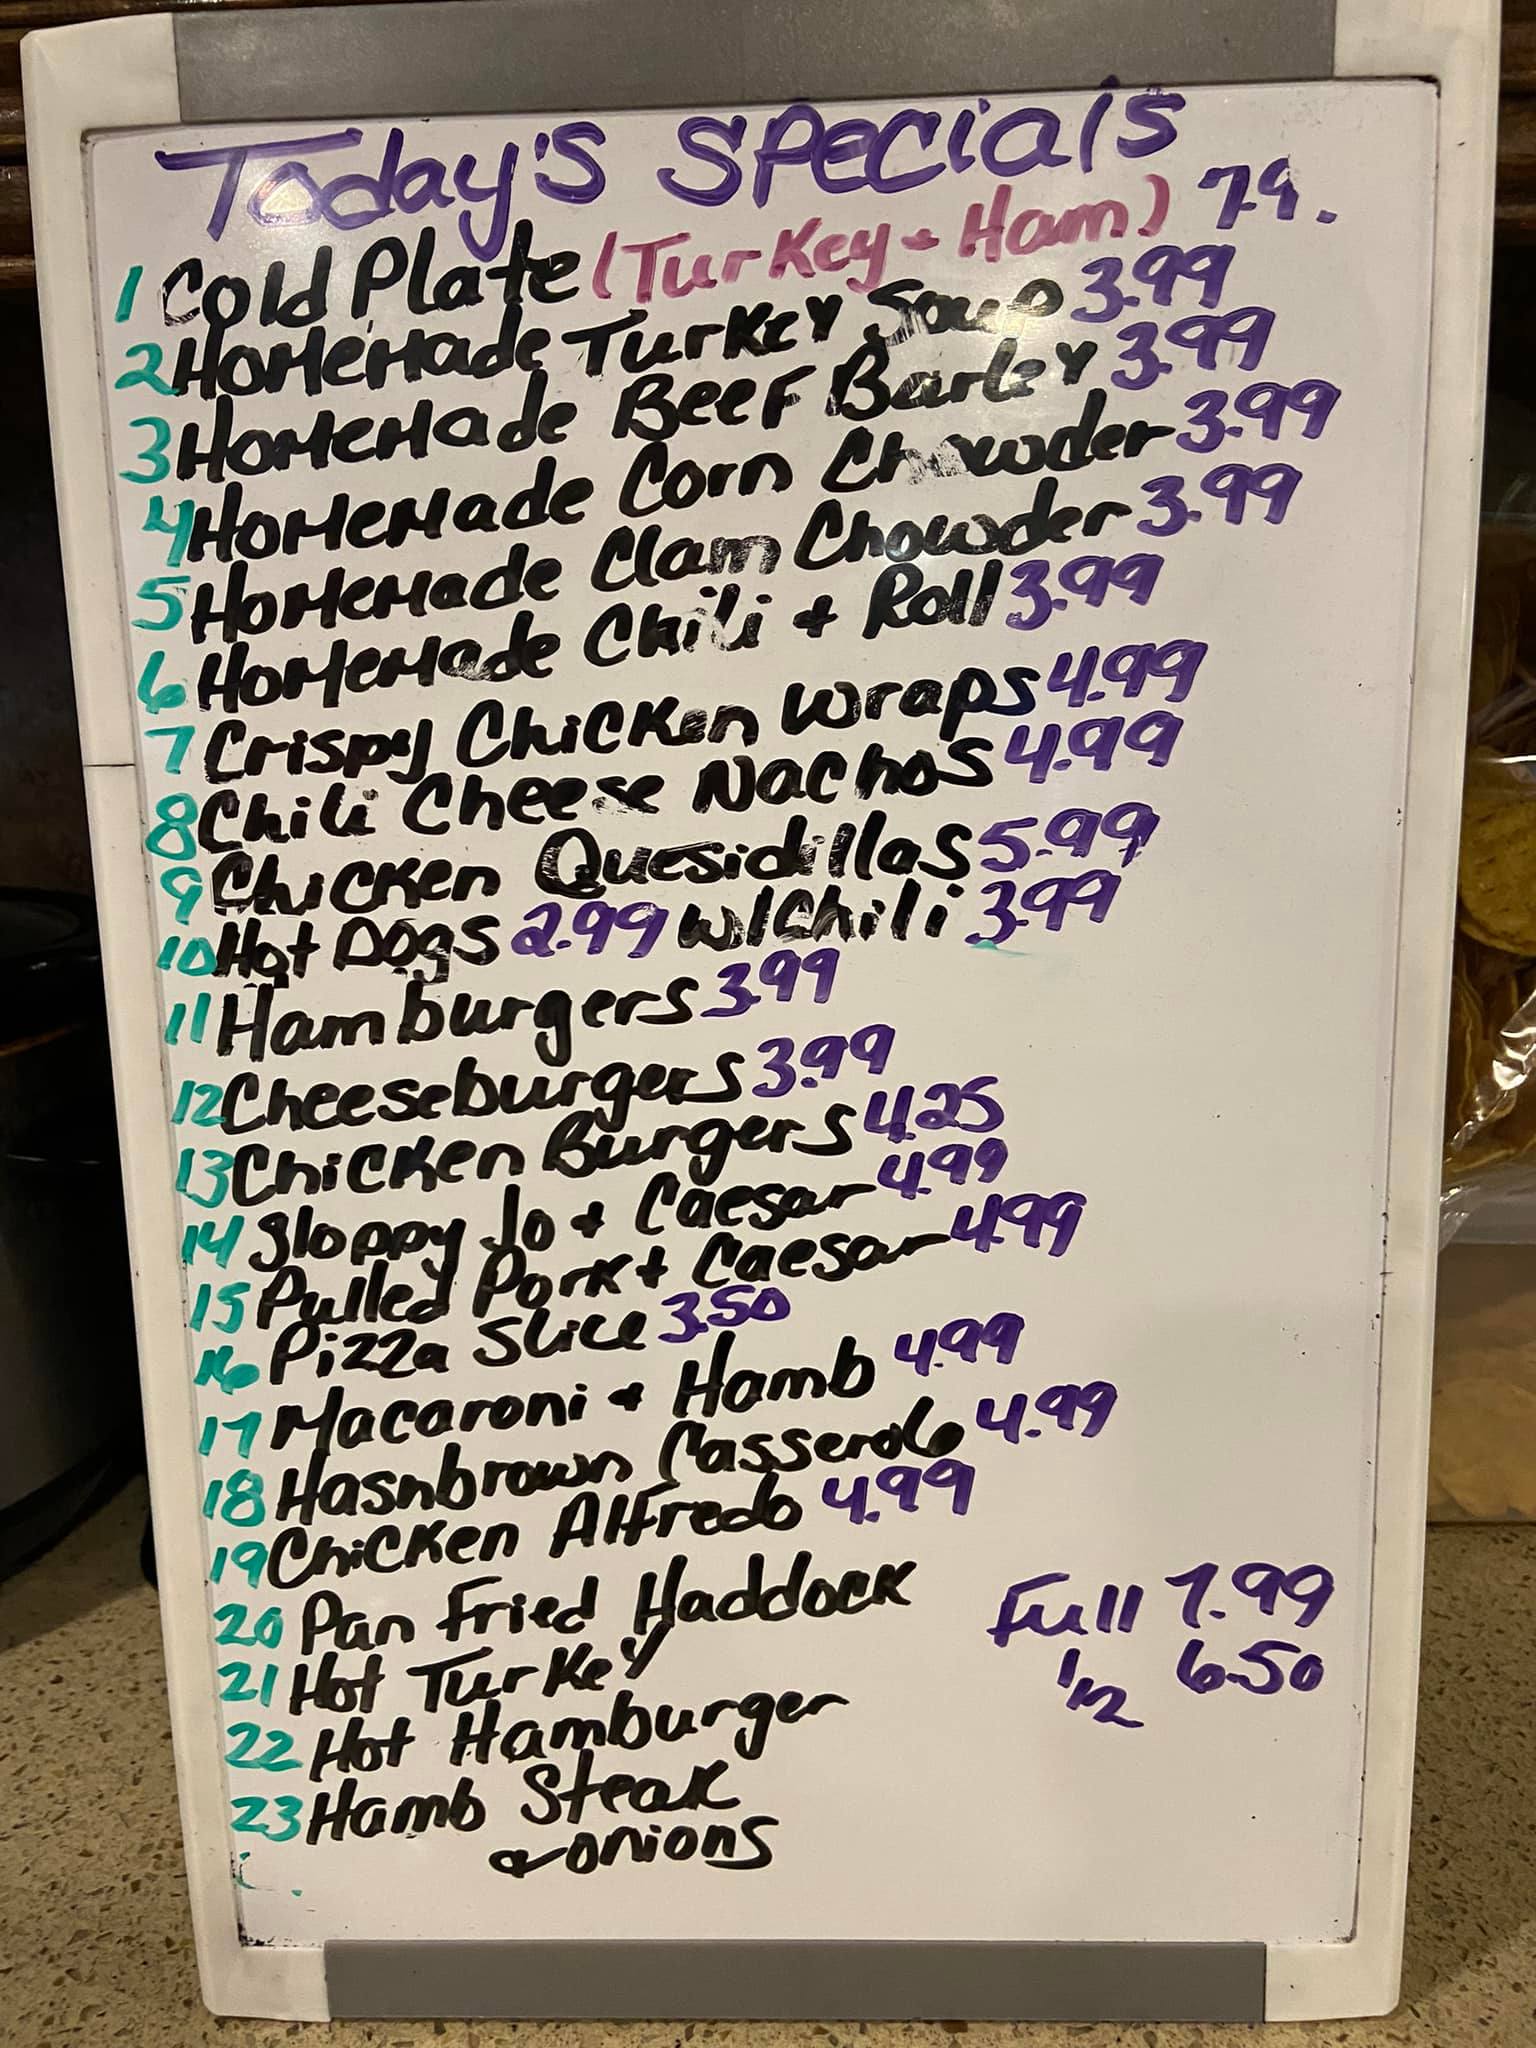 Today's Specials
1 Cold Plate (Turkey + Ham) 7.9.
2 Homemade Turkey Soup 3.99
3 Homemade Beef Barley 3.99
4 Homemade Corn Chowder 3.99
5 Homemade Clam Chowder 3.99
6 Homemade Chili + Roll 3.99
7 Crispy Chicken Wraps 4.99
8 Chili Cheese Nachos 4.99
9 Chicken Quesidillas 5.99
10 Hot Dogs 2.99 w/Chili 3.99
11 Hamburgers 3.99
12 Cheeseburgers 3.99
13 Chicken Burgers 4.25
14 Sloppy Jo + Caesar 4.99
15 Pulled Pork + Caesar 4.99
16 Pizza Slice 3.50
17 Macaroni + Hamb 4.99
18 Hashbrown Casserole 4.99
19 Chicken Alfredo 4.99
20 Pan Fried Haddock Full 7.99
21 Hot Turkey 1/2 6.50
22 Hot Hamburger
23 Hamb Steak
+ onions